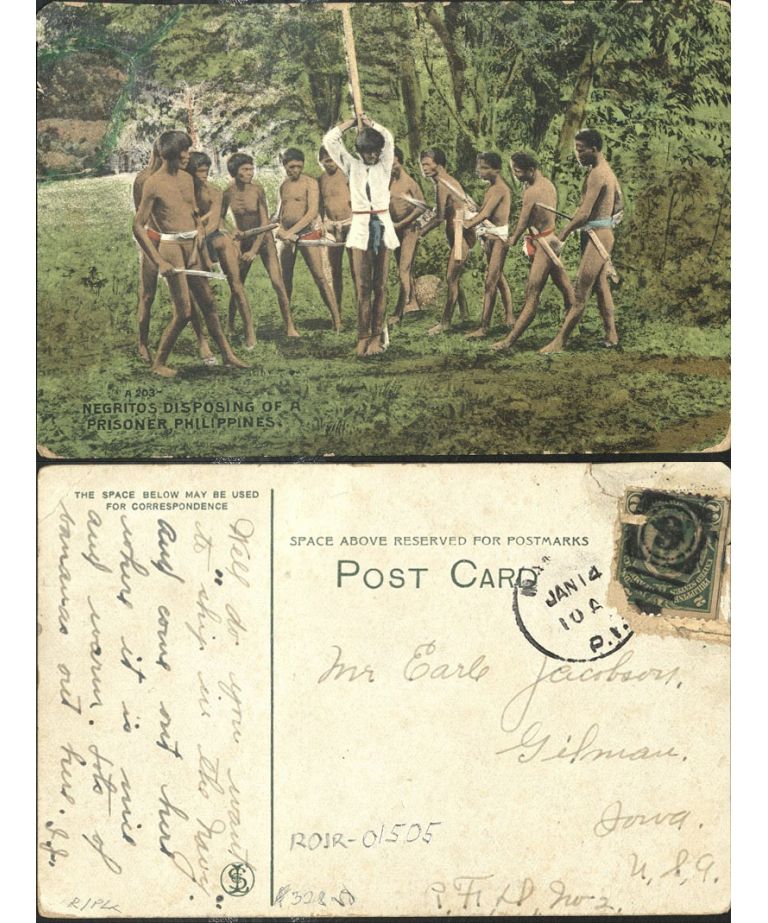 A 203-
NEGRITOS DISPOSING OF A
PRISONER, PHILIPPINES.
THE SPACE BELOW MAY BE USED
FOR CORRESPONDENCE
Well do you want
to "ship in the Navy"
and come out here
where it is nice
and warm. Lots of
bananas out here. J.J.
SPACE ABOVE RESERVED FOR POSTMARKS
POST CARD
JAN 14
10 A
P.I.
Mr Earle Jacobson,
Gilman.
Iowa.
U.S.A.
R.F.D. No-2.
ROIR-01505
R/PLK